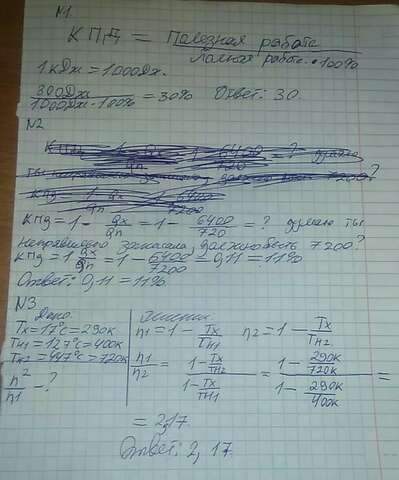 N1.
КПД = Полезная работа
Полная работа • 100%
1 кДж = 1000Дж.
300Дж
1000Дж • 100% = 30% Ответ: 30.
N2
КПД = 1 - Qх/Qn = 1 - 6400/720 = ? думаю ты
неправильно записала, должно быть 7200?
КПД = 1 Qх/Qn = 1 - 6400/7200 = 0,11 = 11%
Ответ: 0,11 = 11%
N3
Дано: Решение
Tх = 17°C = 290К
Tн1 = 127°C = 400К
Tн2 = 447°C = 720К
n2/n1 - ?
n1 = 1 - Tх/Tн1 n2 = 1 - Tх/Tн2
n1/n2 = (1 - Tх/Tн2)/(1 - Tх/Tн1) = (1 - 290К/720К)/(1 - 290К/400К) =
= 2,17.
Ответ: 2,17